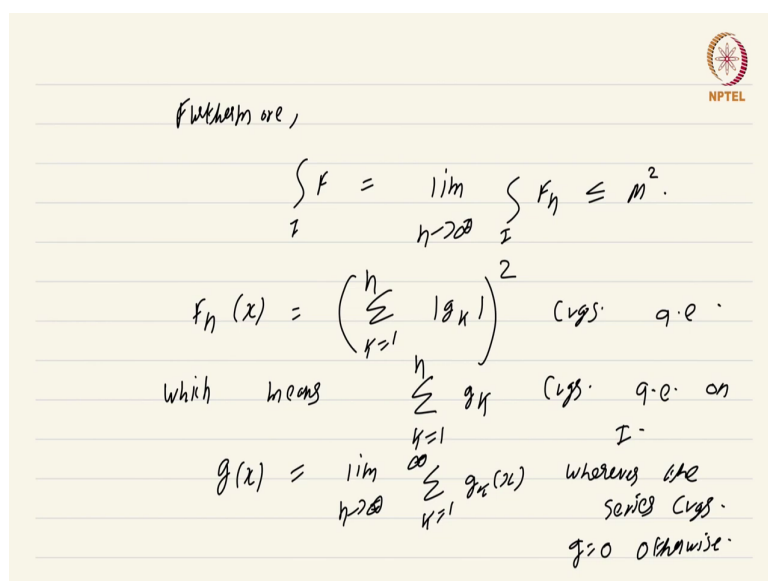 NPTEL
Furthermore,
∫_I F = lim_{n->∞} ∫_I F_n ≤ M^2.
F_n (x) = (∑_{k=1}^{n} |g_k|)^2 Cvgs. a.e.
which means ∑_{k=1}^{n} g_k Cvgs. a.e. on I.
g(x) = lim_{n->∞} ∑_{k=1}^{∞} g_k(x) wherever the
series Cvgs.
g=0 otherwise.